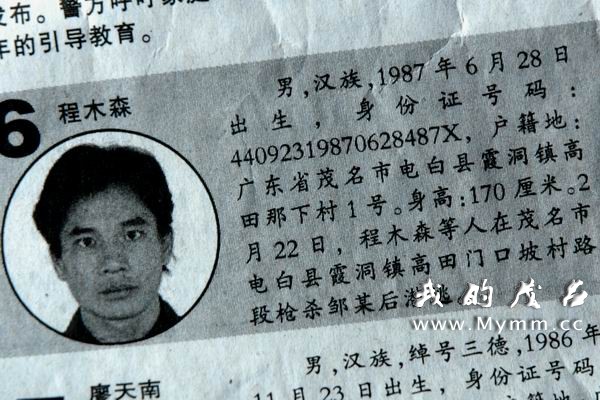 发布。警方呼吁家庭
年的引导教育。
6
程木森
男,汉族,1987 年 6 月 28 日
出生,身份证号码:
44092319870628487X,户籍地:
广东省茂名市电白县霞洞镇高
田那下村 1 号。身高:170 厘米。2
月 22 日,程木森等人在茂名市
电白县霞洞镇高田门口坡村路
段枪杀邹某后
我的茂名
www.Mymm.cc
男,汉族,绰号三德,1986 年
廖天南
11 月 23 日出生,身份证号码